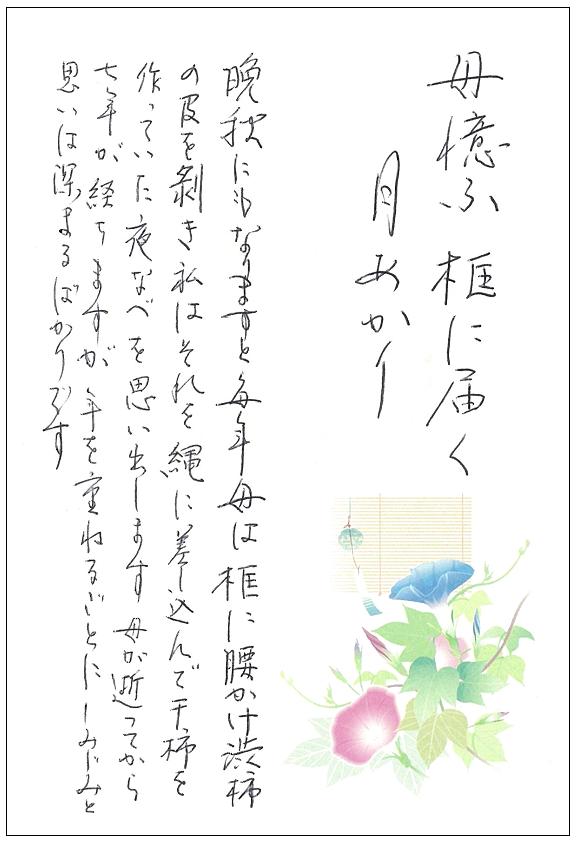 母憶ふ框に届く
月あかり
晩秋にもなりますと毎年母は框に腰かけ渋柿
の皮を剥き私はそれを縄に差し込んで干柿を
作っていた夜なべを思い出します母が逝ってから
七年が経ちますが年を重ねるごとにしみじみと
思いは深まるばかりです